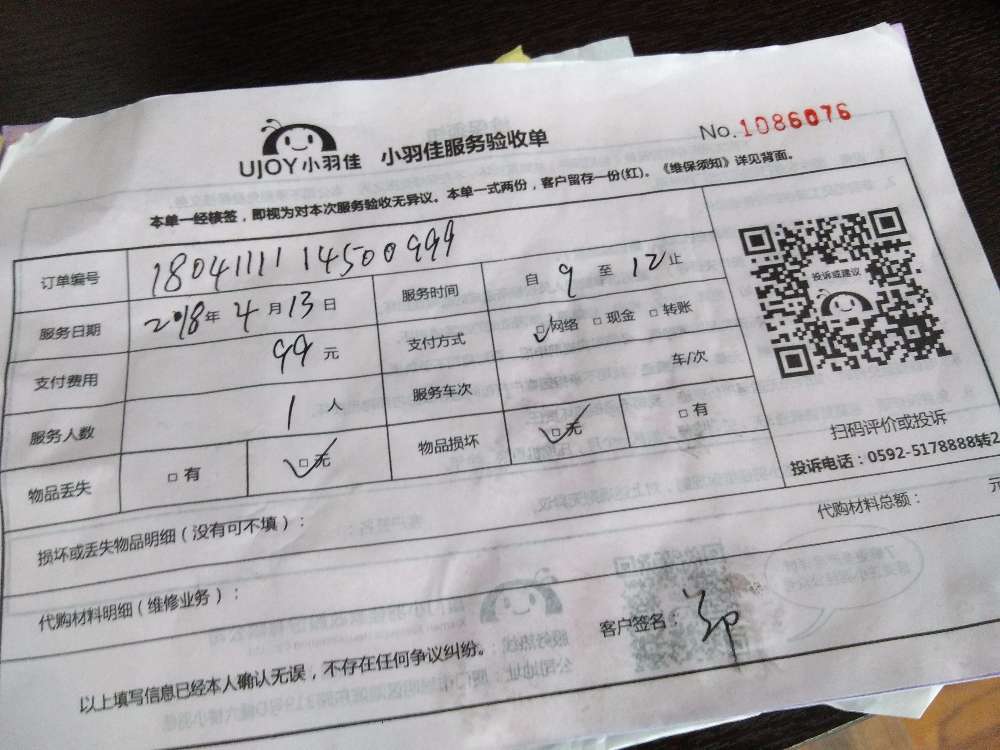 UJOY小羽佳 小羽佳服务验收单 No.1086076
本单一经核签，即视为对本次服务验收无异议。本单一式两份，客户留存一份(红)。《维保须知》详见背面。
订单编号 1804111114500999
服务日期 2018年4月13日 服务时间 自9至12止
支付费用 99元 支付方式 □网络 □现金 □转账
服务人数 1人 服务车次 车/次
物品丢失 □有 □无 物品损坏 □无 □有
投诉或建议
扫码评价或投诉
投诉电话：0592-5178888转2
损坏或丢失物品明细（没有可不填）：
代购材料总额： 元
代购材料明细（维修业务）：
客户签名：
以上填写信息已经本人确认无误，不存在任何争议纠纷。